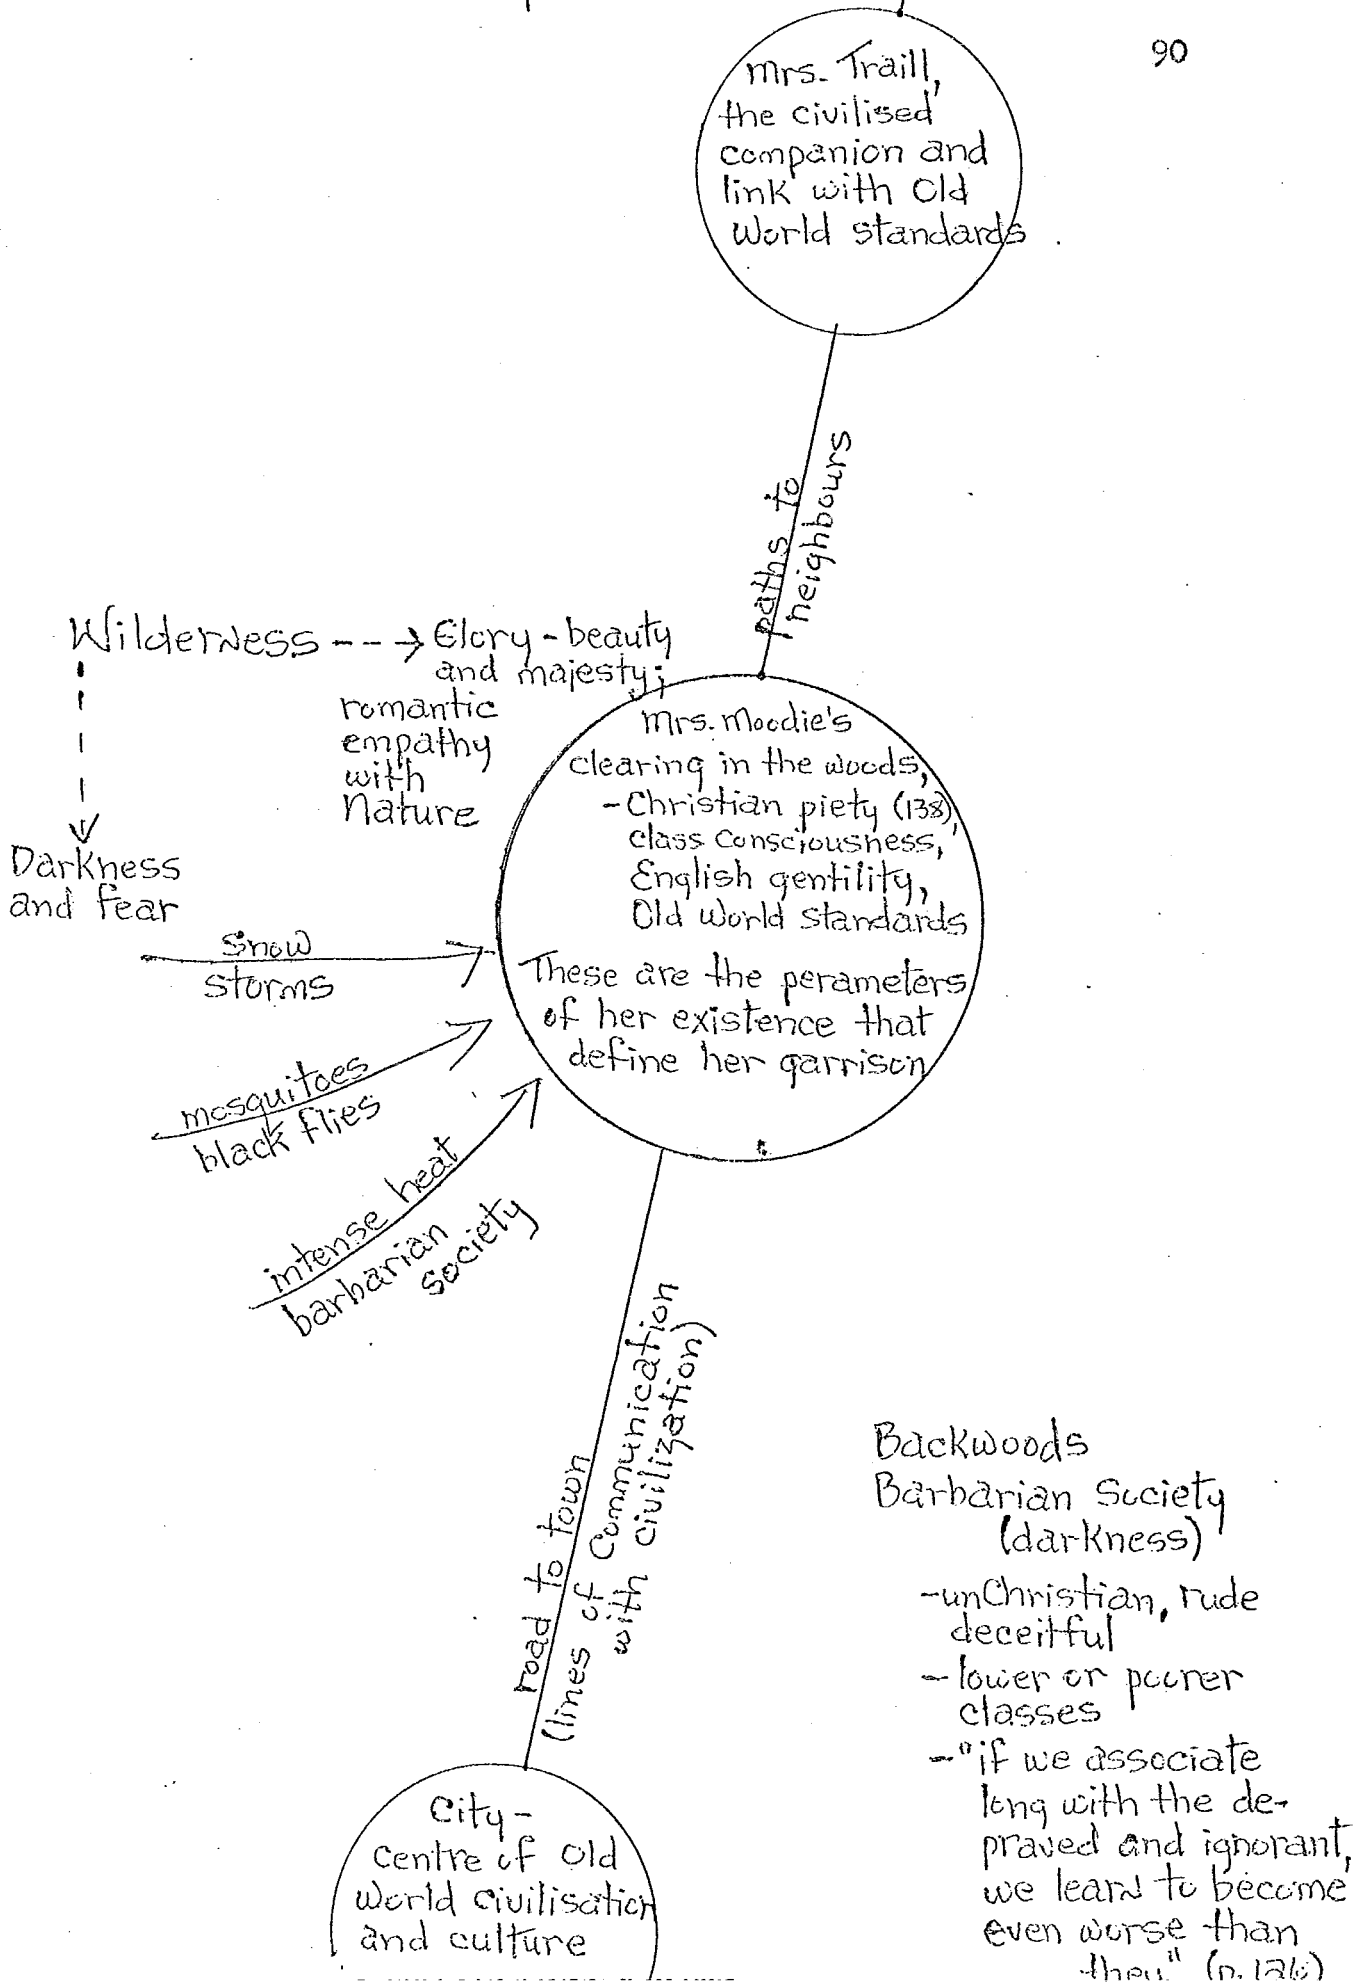 90
Mrs. Traill,
the civilised
companion and
link with Old
World standards
paths to
neighbours
Wilderness
Glory - beauty
and majesty;
romantic
empathy
with
Nature
Darkness
and fear
Mrs. Moodie's
clearing in the woods,
- Christian piety (138),
class consciousness,
English gentility,
Old World standards
These are the perameters
of her existence that
define her garrison
snow
storms
mosquitoes
black flies
intense heat
barbarian
society
road to town
(lines of Communication
with civilization)
City -
Centre of Old
World civilisation
and culture
Backwoods
Barbarian Society
(darkness)
- unChristian, rude
deceitful
- lower or poorer
classes
- "if we associate
long with the de-
praved and ignorant,
we learn to become
even worse than
they" (p. 126)